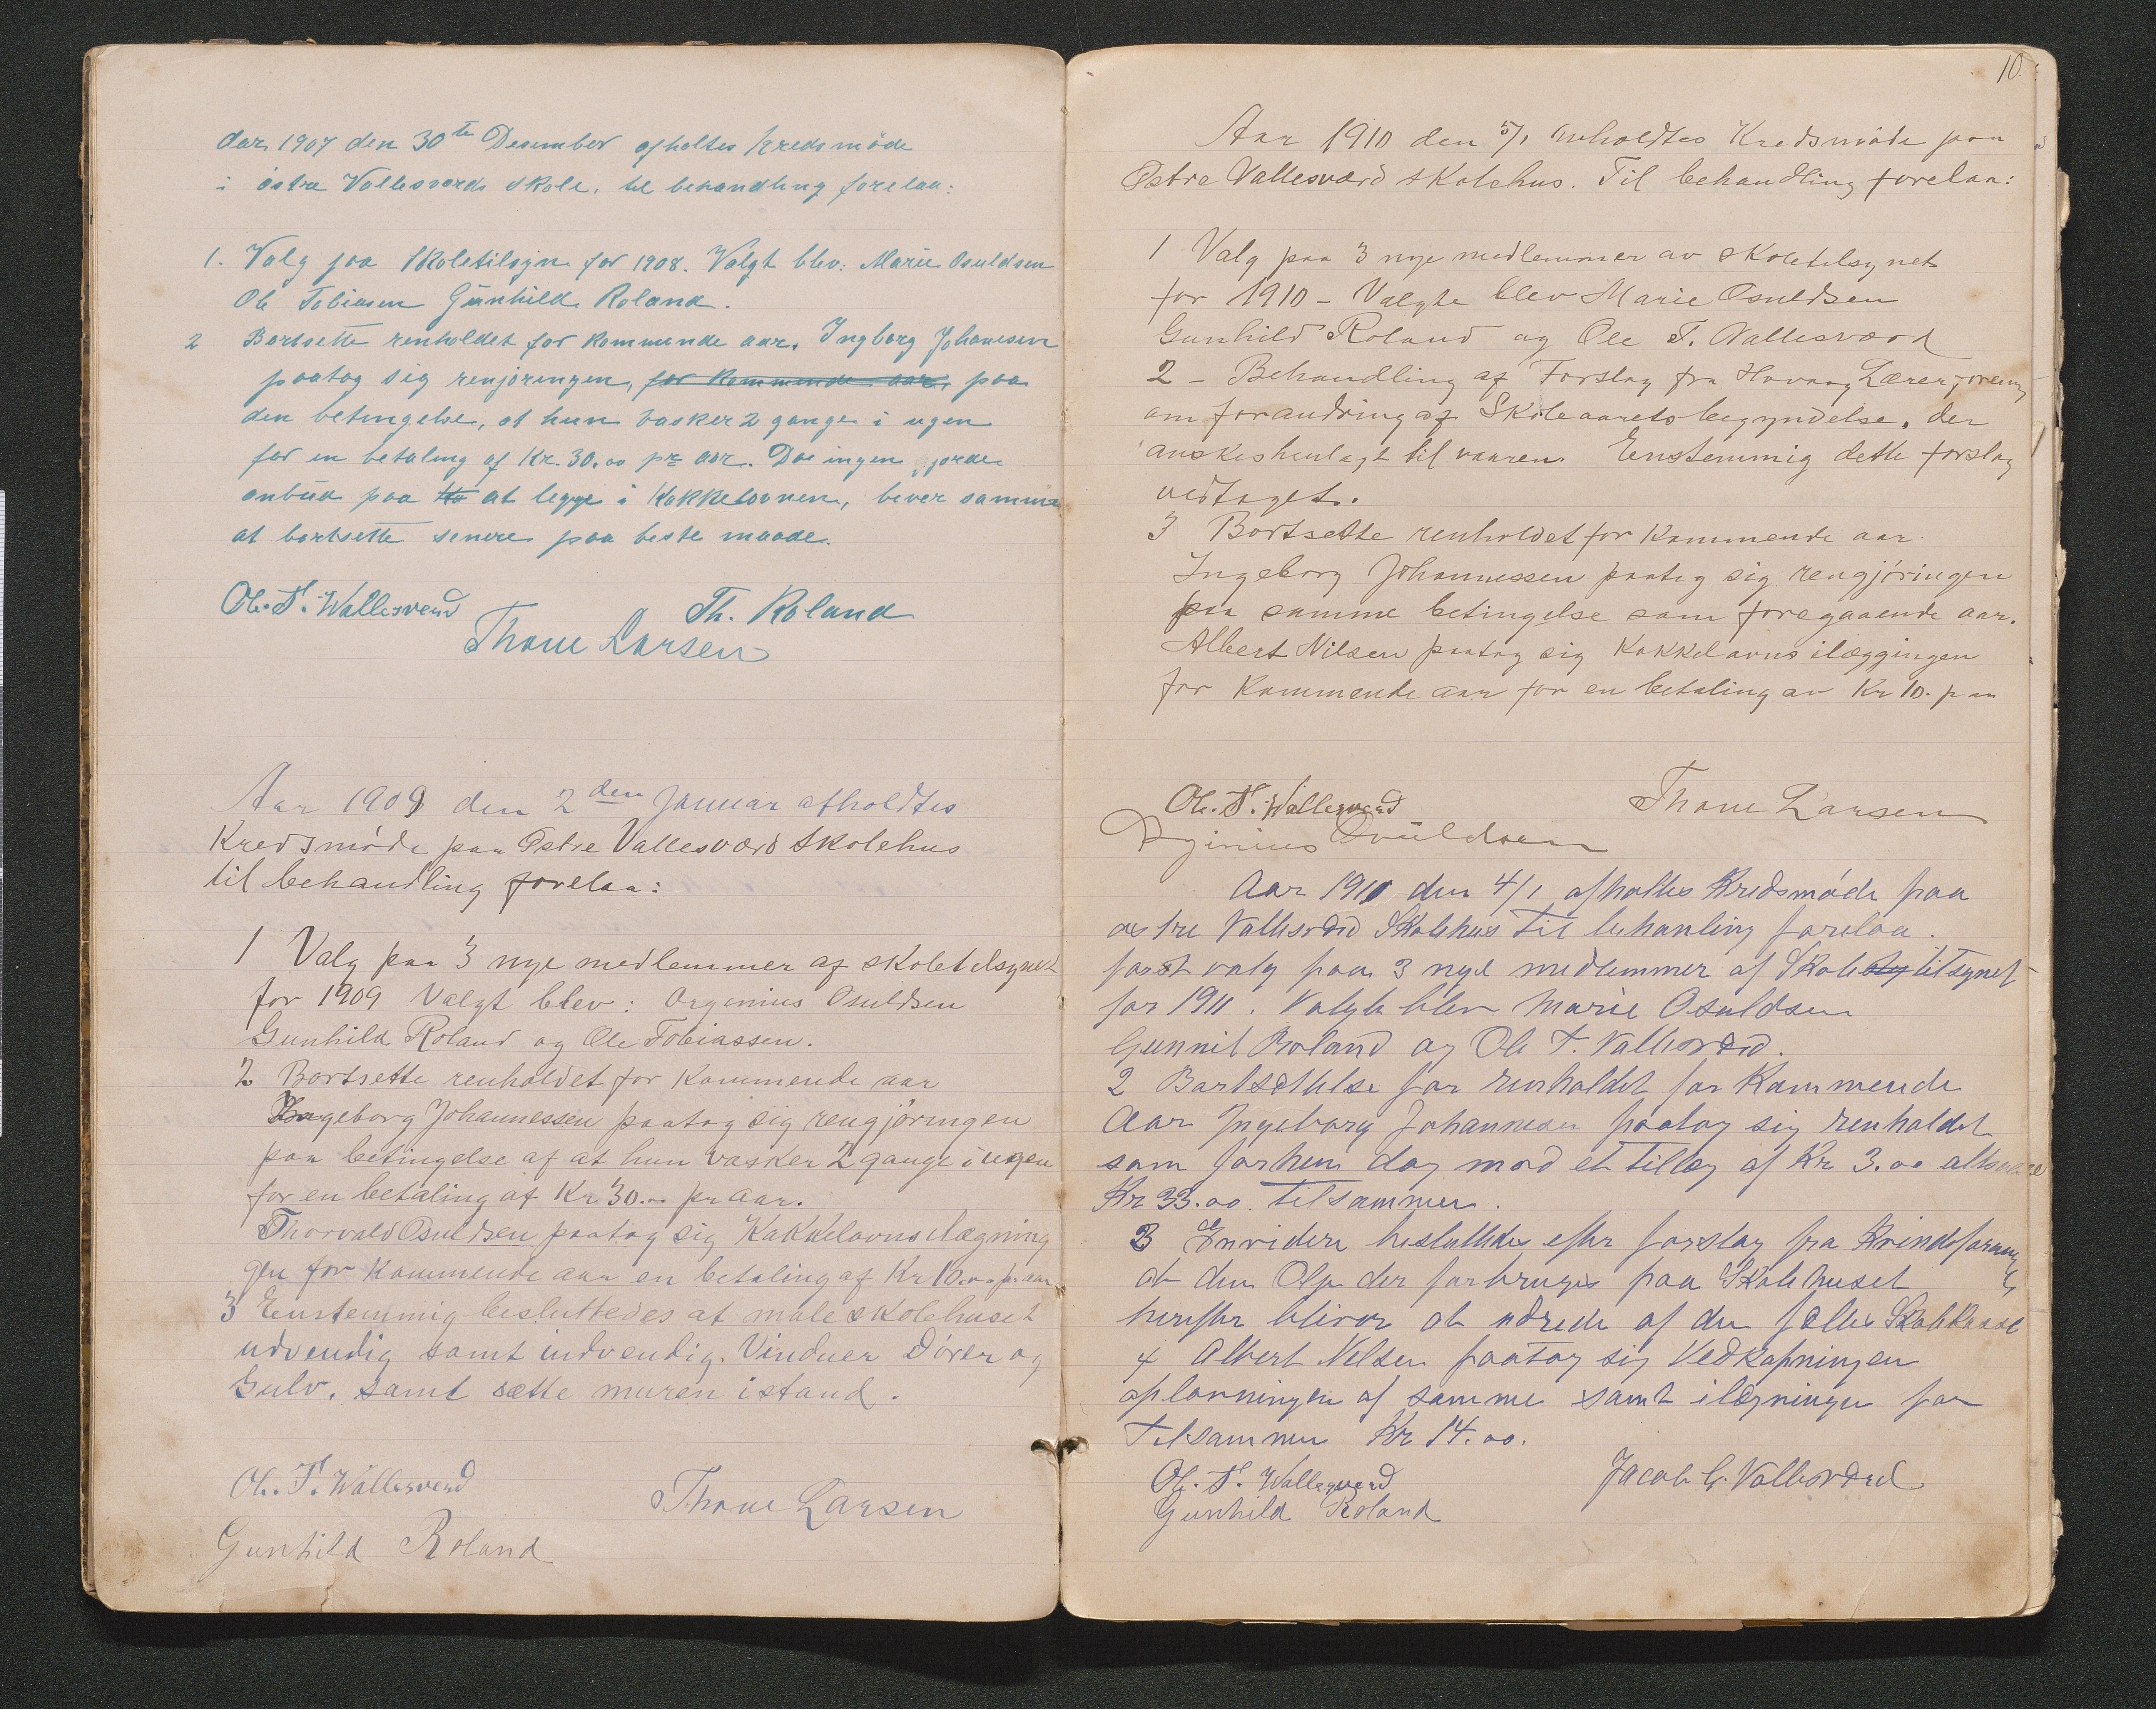 Aar 1907 den 30te Desember afholtes Kredsmöde
i östre Vallesverds skole, til behandling forelaa:
1. Valg paa Skoletilsyn for 1908. Valgt blev: Marie Osuldsen
Ole Tobiasen Günhild Roland.
2 Bortsette renholdet for kommende aar. Ingborg Johanesen
paatog sig renjöringen, for kommende aar, paa
den betingelse, at hun vasker 2 gange i ugen
for en betaling af Kr. 30.00 pr aar. Da ingen gjorde
anbud paa at legge i Kakkelovnen, bever samme
at bortsette senere paa beste maade.
Ole. T. Wallesverd Th. Roland
Thone Larsen
Aar 1909 den 2den Januar afholdtes
Kredsmöde paa Østre Vallesværd Skolehus
til behandling forelaa:
1 Valg paa 3 nye medlemmer af skoletilsynet
for 1909 Valgt blev: Orgenius Osuldsen
Gunhild Roland og Ole Tobiassen.
2 Bortsette renholdet for kommende aar
Ingeborg Johannessen paatog sig rengjöringen
paa betingelse af at hun vasker 2 gange i ugen
for en betaling af Kr 30.00 pr aar.
Thorvald Osuldsen paatog sig Kakkelovnsilægning
gen for kommende aar en betaling af Kr 10.00 pr aar
3 Eenstemmig besluttedes at male skolehuset
udvendig samt indvendig. Vinduer Dörer og
Gulv, samt sætte muren istand.
Ole. T. Wallesverd
Thone Larsen
Gunhild Roland
10.
Aar 1910 den 5/1 Kredsmöde paa
Østre Vallesværd skolehus. Til behandling forelaa:
1 Valg paa 3 nye medlemmer av skoletilsynet
for 1910 - Valgte blev Marie Osuldsen
Gunhild Roland og Ole T. Vallesværd
2 - Behandling af Forslag fra Hovaag Lærerforening
om forandring af Skoleaarets begyndelse, der
önskes henlagt til vaaren. Enstemmig dette forslag
vedtaget.
3 Bortsette renholdet for kommende aar.
Ingeborg Johannessen paatog sig rengjöringen
paa samme betingelse som foregaaende aar.
Albert Nilsen paatog sig Kakkelovns ilæggingen
for kommende aar for en betaling av Kr 10. p aa
Ole. T. Wallesverd Thone Larsen
Osuldsen
Aar 1911 den 4/1 afholtes Kredsmöde paa
östre Vallesværd Skolehus til behanling forelaa.
først valg paa 3 nye medlemmer af Skole tilsynet
for 1911. Valgte blev Marie Osuldsen
Gunnil Roland og Ole T. Vallesværd.
2 Bortsettelse for renholdet for Kommende
Aar Ingeborg Johannesen paatog sig renholdet
som forhen dog mod et tillæg af Kr 3.00 altsaa
Kr 33.00 tilsammen.
3 Envidere besluttedes efter forslag fra Kvindeforening
at den Olje der forbruges paa Skolehuset
herefter bliver at udrede af den fælles Skolekasse
4 Albert Nilsen paatog sig Vedkapningen
oplovningen af samme samt ilægningen for
Tilsammen Kr 14.00.
Ole. T. Wallesverd Jacob G. Vallesværd
Gunhild Roland